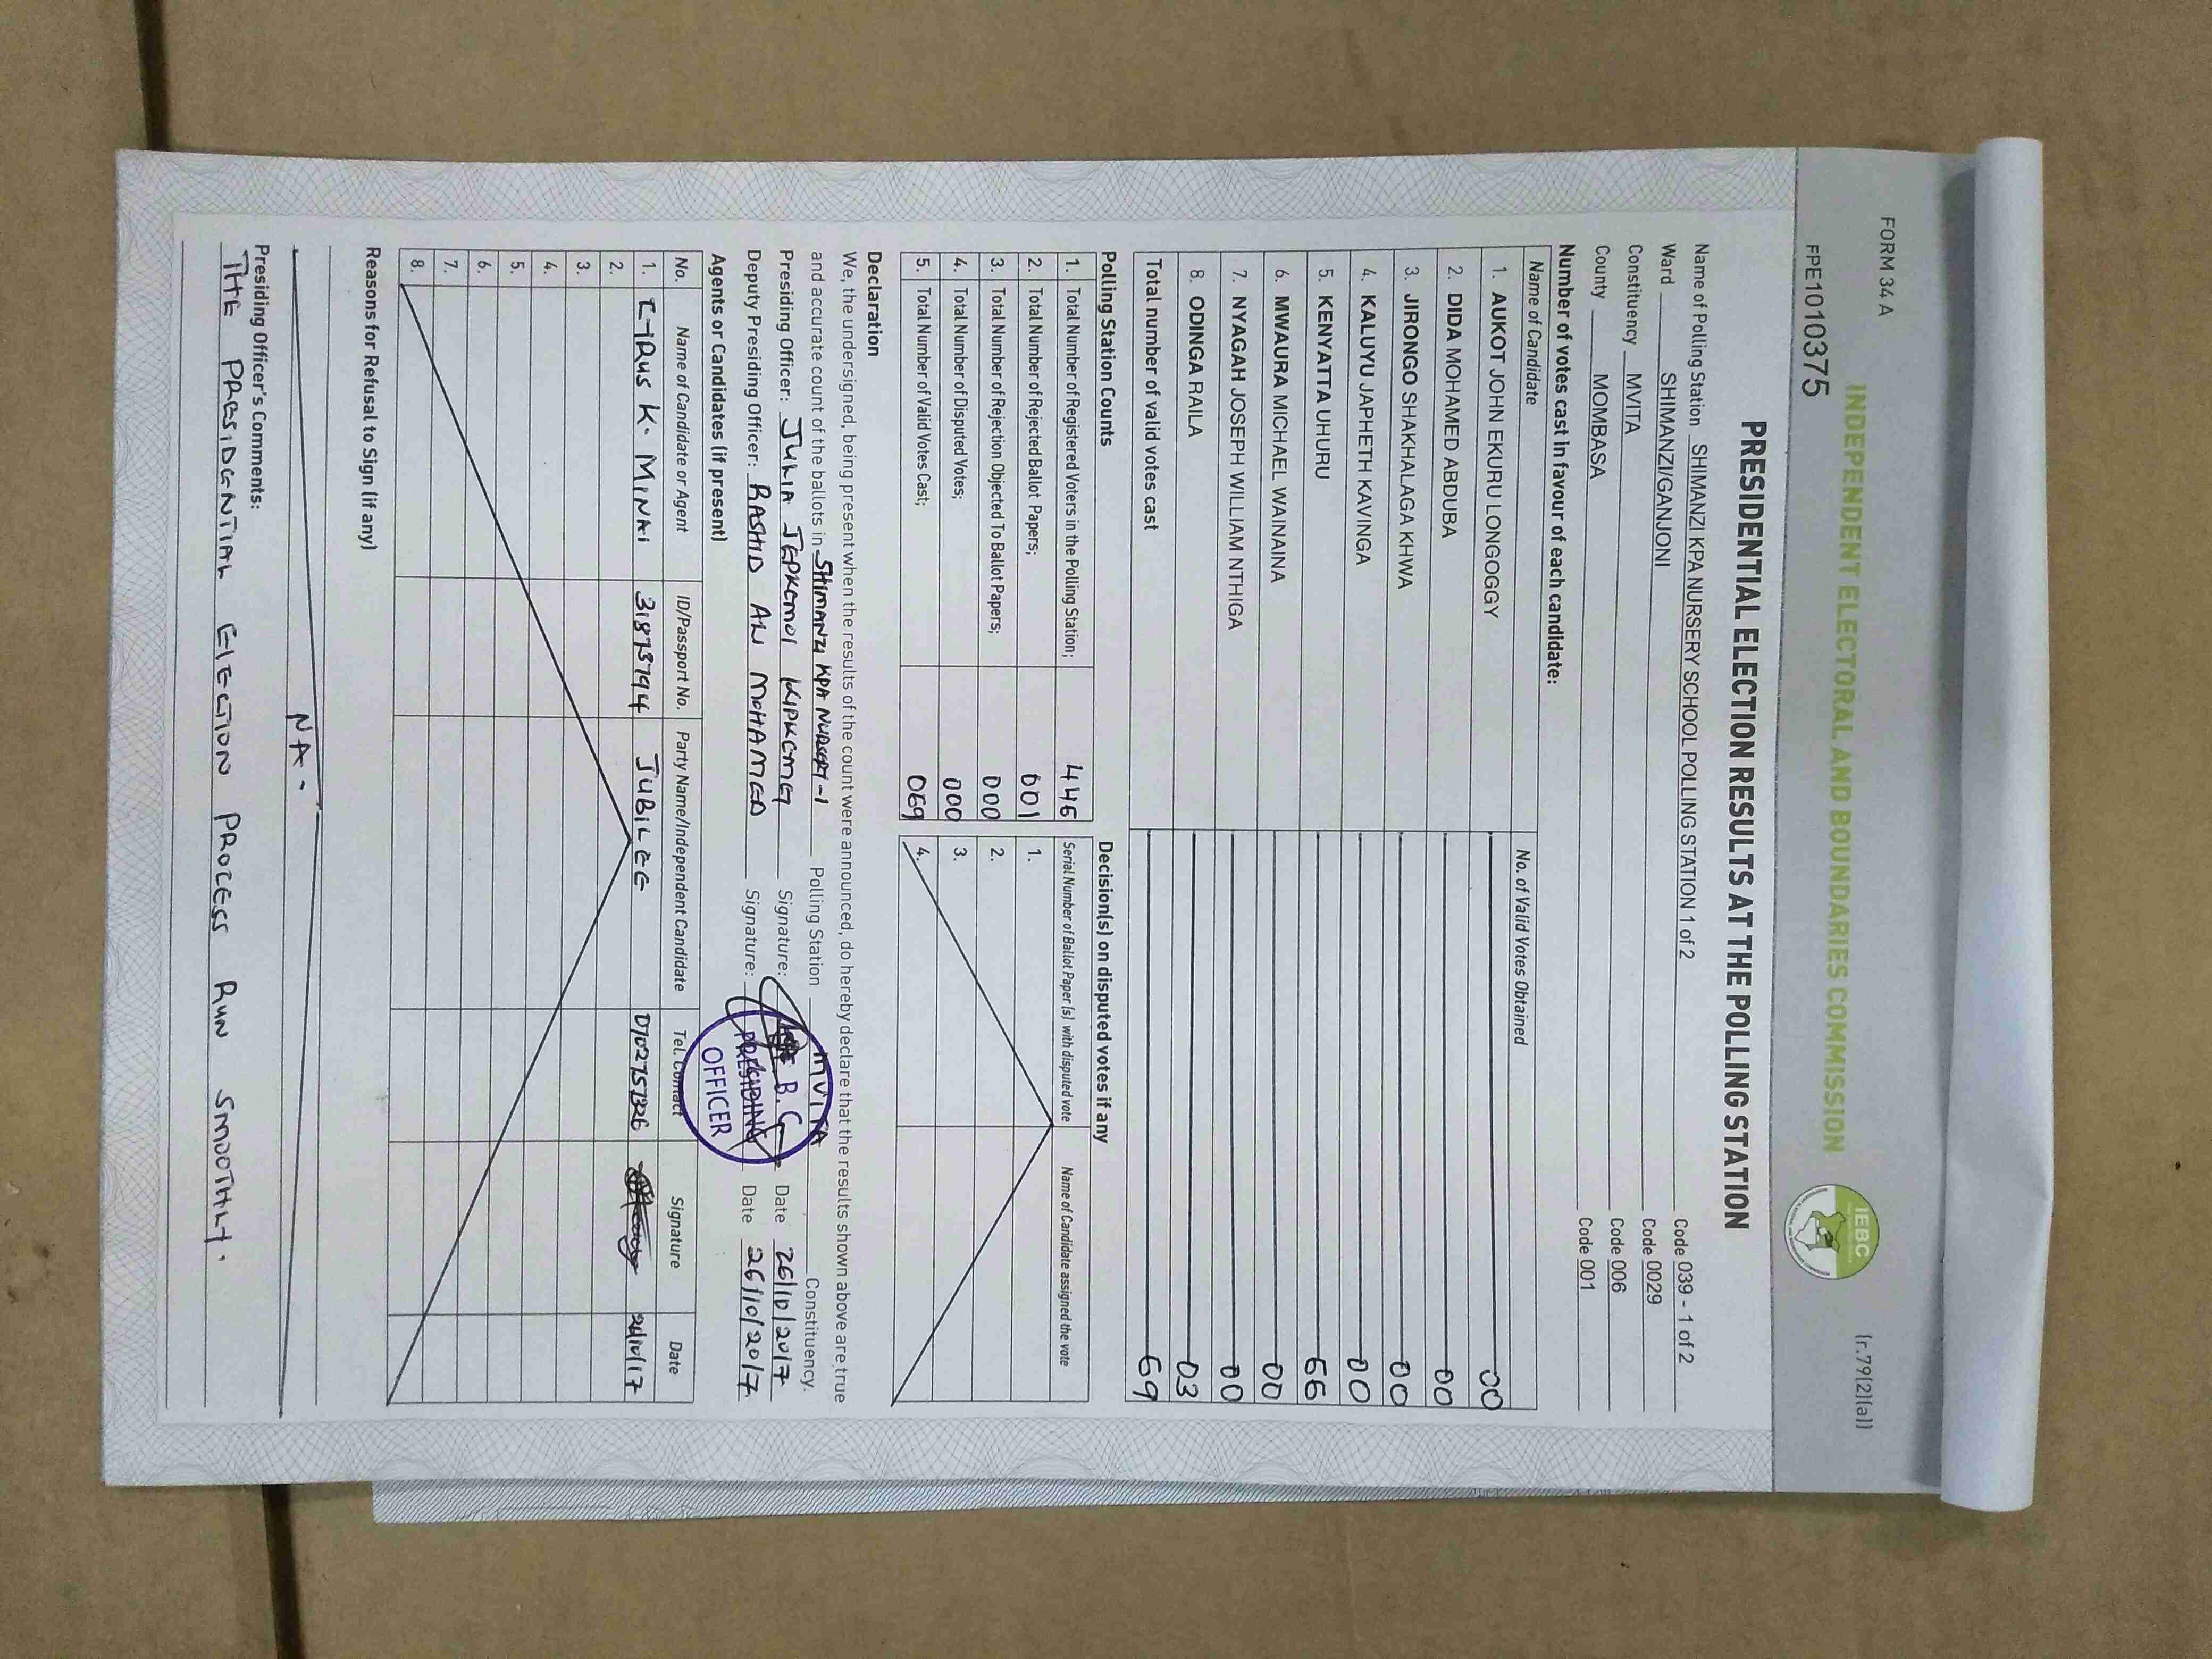 FORM 34 A
(r.79(2)(a))
INDEPENDENT ELECTORAL AND BOUNDARIES COMMISSION
IEBC
FPE1010375
PRESIDENTIAL ELECTION RESULTS AT THE POLLING STATION
Name of Polling Station SHIMANZI KPA NURSERY SCHOOL POLLING STATION 1 of 2 Code 039 - 1 of 2
Ward SHIMANZI/GANJONI Code 0029
Constituency MVITA Code 006
County MOMBASA Code 001
Number of votes cast in favour of each candidate:
Name of Candidate No. of Valid Votes Obtained
1. AUKOT JOHN EKURU LONGOGGY 00
2. DIDA MOHAMED ABDUBA 00
3. JIRONGO SHAKHALAGA KHWA 00
4. KALUYU JAPHETH KAVINGA 00
5. KENYATTA UHURU 66
6. MWAURA MICHAEL WAINAINA 00
7. NYAGAH JOSEPH WILLIAM NTHIGA 00
8. ODINGA RAILA 03
Total number of valid votes cast 69
Polling Station Counts
1. Total Number of Registered Voters in the Polling Station; 446
2. Total Number of Rejected Ballot Papers; 001
3. Total Number of Rejection Objected To Ballot Papers; 000
4. Total Number of Disputed Votes; 000
5. Total Number of Valid Votes Cast; 069
Decision(s) on disputed votes if any
Serial Number of Ballot Paper(s) with disputed vote Name of Candidate assigned the vote
1.
2.
3.
4.
Declaration
We, the undersigned, being present when the results of the count were announced, do hereby declare that the results shown above are true
and accurate count of the ballots in SHIMANZI KPA NURSERY-1 Polling Station MVITA Constituency.
Presiding Officer: JULIA JEPKEMOI KIPKEMEI Signature: Date 26/10/2017
Deputy Presiding Officer: RASHID ALI MOHAMED Signature: Date 26/10/2017
PRESIDING
OFFICER
Agents or Candidates (if present)
No. Name of Candidate or Agent ID/Passport No. Party Name/Independent Candidate Tel. Contact Signature Date
1. CYRUS K. MINAI 31873794 JUBILEE 0702757326
2.
3.
4.
5.
6.
7.
8.
Reasons for Refusal to Sign (if any)
NA.
Presiding Officer's Comments:
THE PRESIDENTIAL ELECTION PROCESS RUN SMOOTHLY.